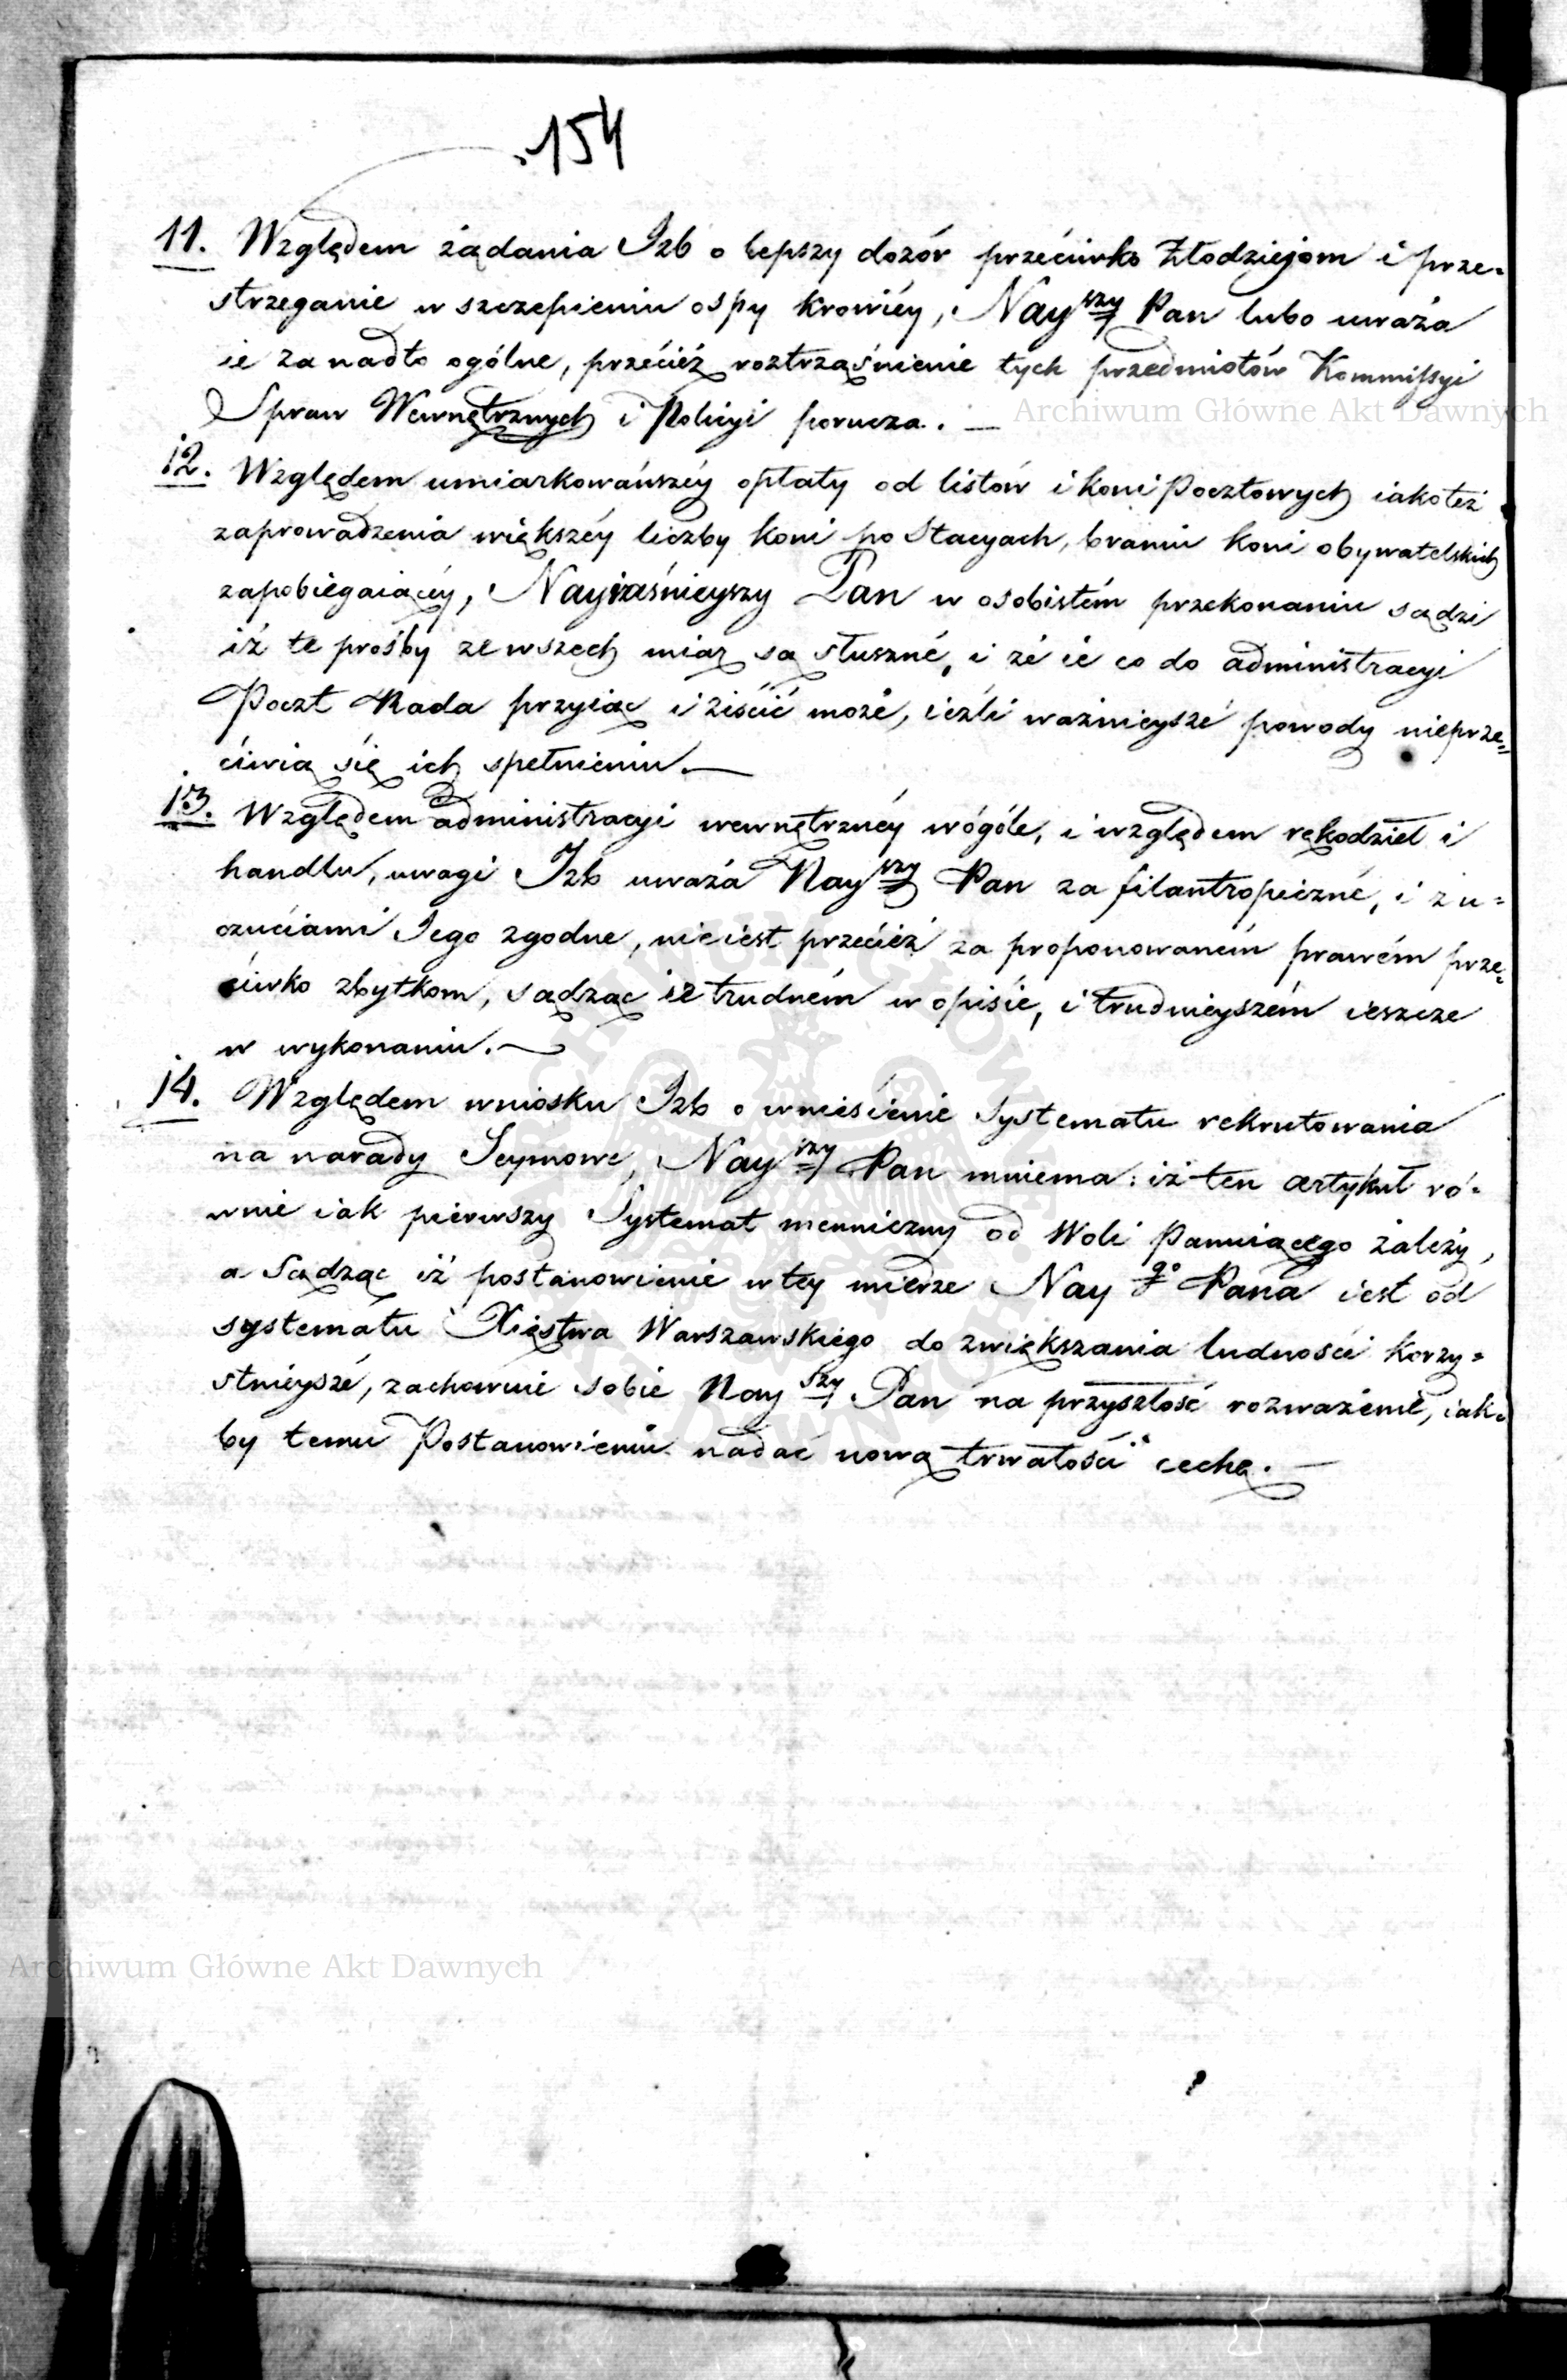 154
11. Względem żądania Izb o lepszy dozór przećiwko Złodziejom i prze=
strzeganie w szczepieniu ospy krowiéy, Nayszy Pan lubo uważa
ie za nadto ogólne, przećiéż roztrząśnienie tych przedmiotów Kommissyi
Spraw Wewnętrznych i Policyi porucza. —
Archiwum Główne Akt Dawnych
12. Względem umiarkowańszéy opłaty od listów i koni Pocztowych iakoteż
zaprowadzenia większéy liczby koni po Stacyach, braniu koni obywatelskich
zapobiegaiącéy, Nayiaśnieyszy Pan w osobistém przekonaniu sądzi
iż te prośby ze wszech miar są słuszné, i że ié co do administracyi
Poczt Rada przyiąc i ziścić może, ieżli ważnieyszé powody nieprze=
ćiwią się ich spełnieniu. —
13. Względem administracyi wewnętrznéy wógóle, i względem rękodzieł i
handlu, uwagi Izb uważa Nayszy Pan za filantropiczné, i z u=
czućiami Jego zgodne, nie iest przećiéż za proponowaném prawém prze=
ćiwko zbytkom, sądząc ie trudném w opiśie, i trudnieyszém ieszcze
w wykonaniu. —
14. Względem wniosku Izb o wnieśienie Systematu rekrutowania
na narady Seymowe, Nayszy Pan mniema: iż ten artykuł ró=
wnie iak pierwszy Systemat menniczny od Woli Panuiącego zależy,
a Sądząc iż postanowienie w tey mierze Naygo Pana iest od
systematu Xięstwa Warszawskiego do zwiększania ludnośći korzy=
stnieyszé, zachowuie sobie Nayszy Pan na przyszłość rozważenie, iak=
by temu Postanowieniu nadać nową trwałośći cechę. —
Archiwum Główne Akt Dawnych